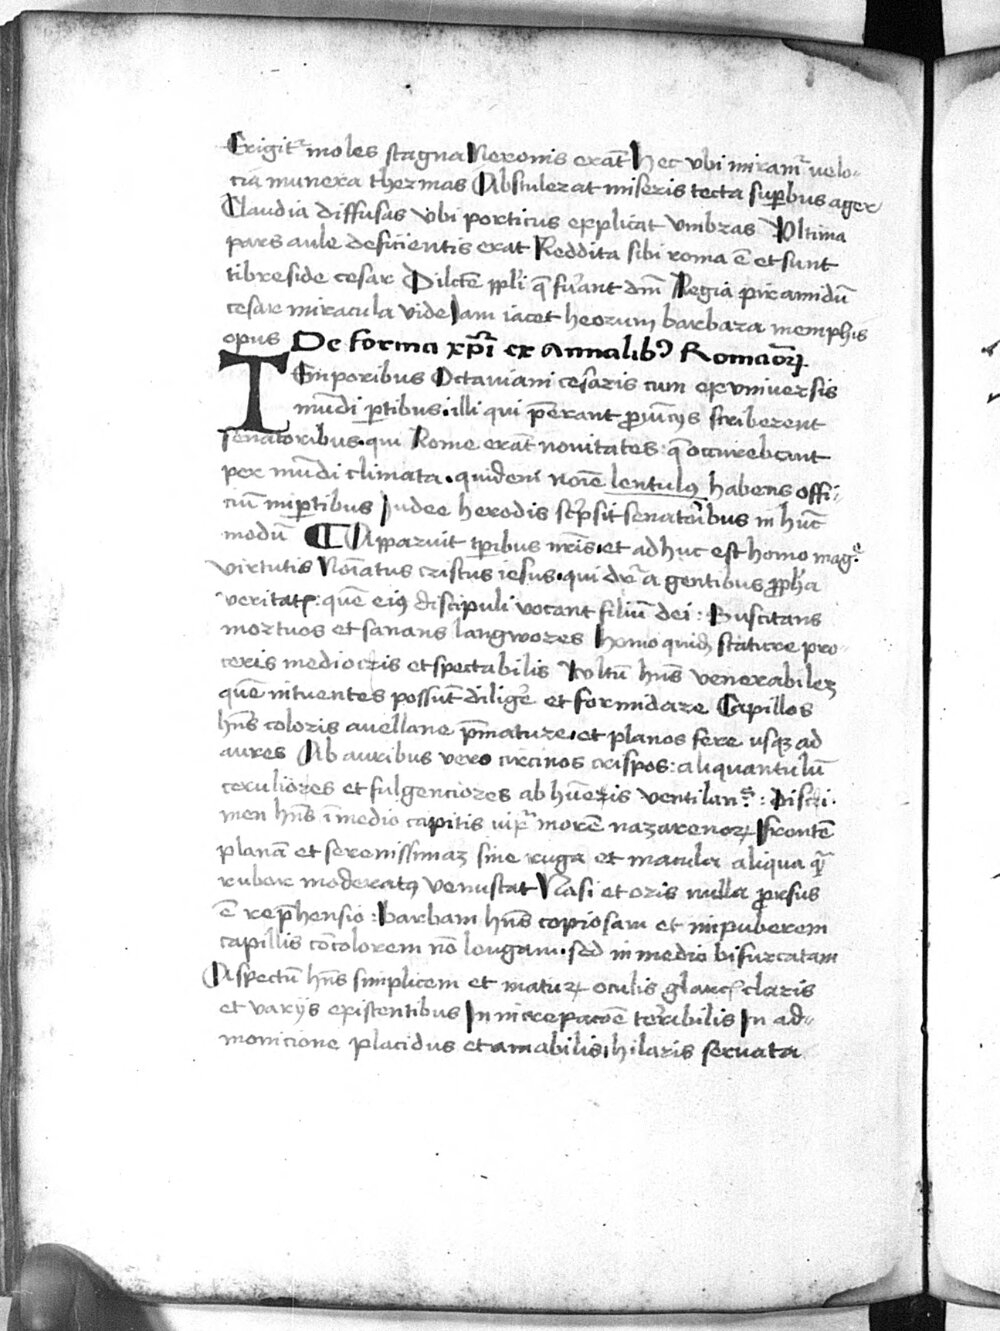 Erigit᷑ moles stagna Neronis erāt Hec vbi miram᷑ uelo-
cia munera thermas Abstulerat miseris tecta suꝑbus ager
Claudia diffusas vbi porticus explicat vmbras Vltima
pars aule deficientis erat Reddita sibi roma ē et sunt
te preside cesar Dilicie ppl'i q̄ fu'rant dn̄i Regia piramidū
cesar miracula vide Iam iacet heorum barbara memphis
opus De forma xp̄i ex Annalibꝰ Romaōꝝ
Temporibus Octauiani cesaris cum ex vniuersis
mūdi ꝑtibus · illi qui p̄erant ꝓuīcijs scriberent
senatoribus · qui Rome erāt nouitates : q̄ occurebant
per mūdi climata · quidem noīe lentulꝰ habens offi-
ciū in ꝑtibus Iudee herodis sc'psit senatoribus in hūc
modū ¶ Apparuit tꝑibus nr̄is · et adhuc est homo mag᷑
virtutis Noīatus cristus iesus · qui dr̄ a gentibus ꝓph'a
veritatꝭ : quē eiꝰ discipuli vocant filiū dei : Suscitans
mortuos et sanans langwores Homo quidē stature pro-
ceris mediocris et spectabilis Vultū hn̄s venerabileꝫ
quē intuentes possūt dilig'e et formidare Capillos
hn̄s coloris auellane p̄mature · et planos fere usqꝫ ad
aures Ab auribus vero circinos crispos : aliquantulū
ceruliores et fulgenciores ab hūeris ventilan᷑s : Discri-
men hn̄s ī medio capitis iux᷑ morē nazarenoꝝ frontē
planā et serenissimaꝫ sine ruga et macula aliqua q᷑
rubor moderatꝰ venustat Nasi et oris nulla ꝓrsus
ē rep̄hensio : Barbam hn̄s copiosam et impuberem
capillis cōcolorem nō longam · sed in medio bifurcatam
Aspectū hn̄s simplicem et maturꝫ oculis glaucꝭ claris
et varijs existentibus In increpacōe te'ribilis In ad-
monicione placidus et amabilis, hilaris seruata